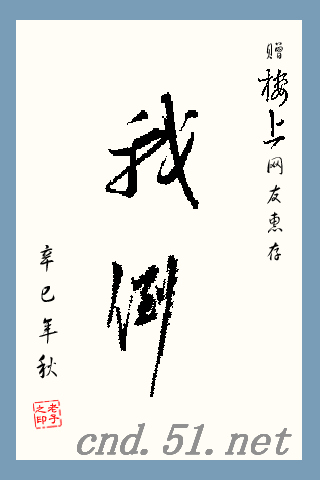 赠楼上网友惠存
我倒
辛巳年秋
老子之印
cnd.51.net